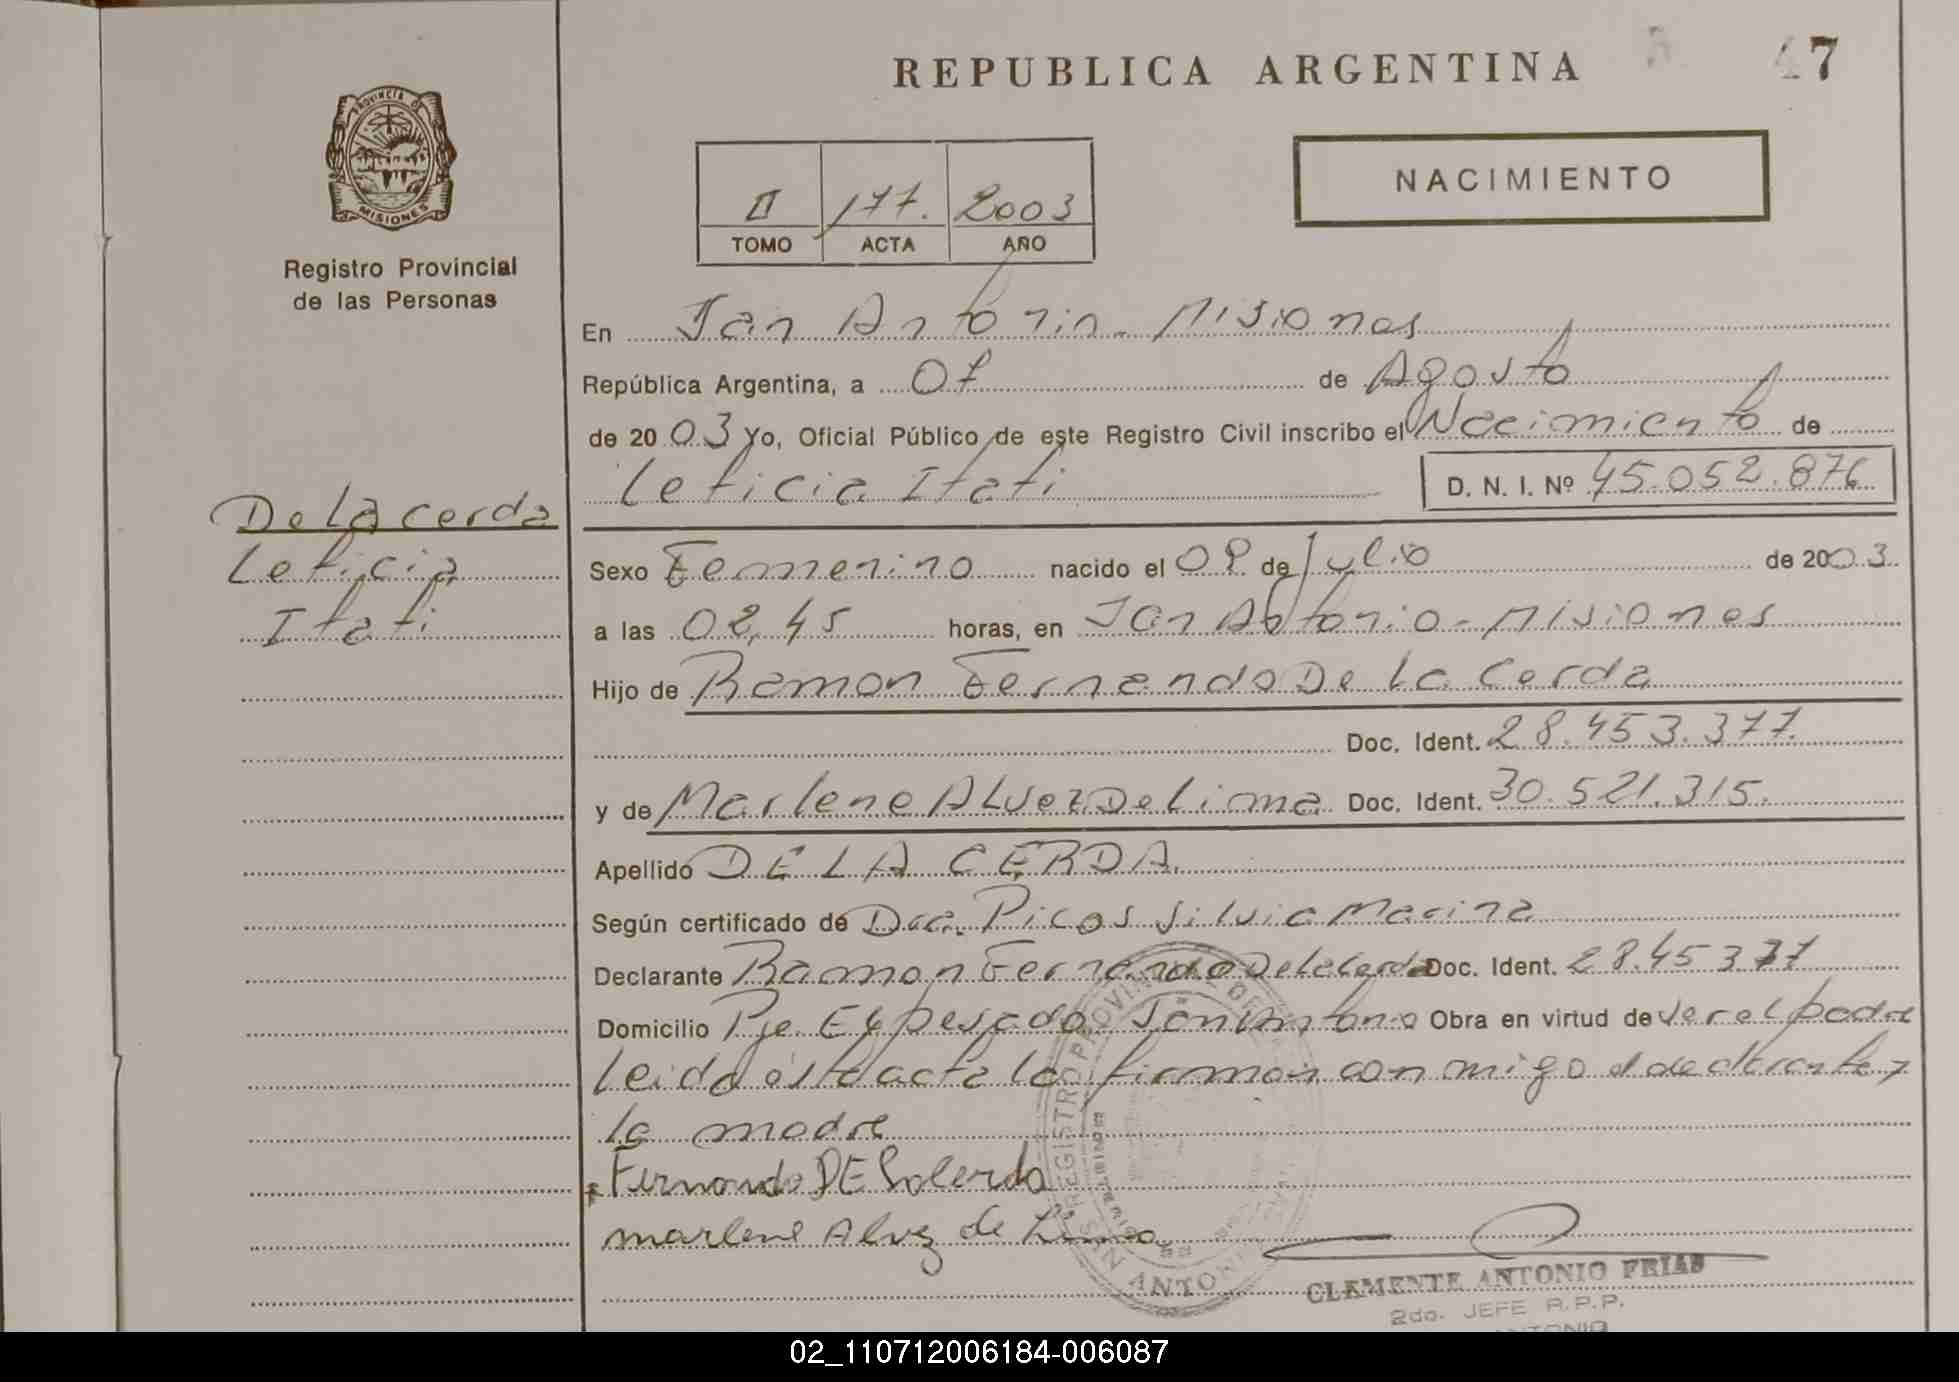 REPUBLICA ARGENTINA
47
PROVINCIA DE
MISIONES
Registro Provincial
de las Personas
II 177. 2003
TOMO ACTA AÑO
NACIMIENTO
En San Antonio - Misiones
República Argentina, a 07 de Agosto
de 2003 Yo, Oficial Público de este Registro Civil inscribo el Nacimiento de
Leticia Itati D. N. I. Nº 45.052.876
De la cerda
Leticia
Itati
Sexo Femenino nacido el 08 de Julio de 2003
a las 02,45 horas, en San Antonio - Misiones
Hijo de Ramon Fernando De la Cerda
Doc. Ident. 28.453.377.
y de Marlene Alvez De Lima Doc. Ident. 30.521.315.
Apellido DE LA CERDA.
Según certificado de Dra. Picos Silvia Marina
Declarante Ramon Fernando De la Cerda Doc. Ident. 28.45 377
Domicilio Pje. San Antonio Obra en virtud de ser el padre
leida esta acta la firman con migo el declarante y
la madre
Fernando DE la cerda
marlene Alvez de Lima
REGISTRO PROVINCIAL DE
SAN ANTONIO
CLEMENTE ANTONIO FRIAS
2do. JEFE R.P.P.
02_110712006184-006087